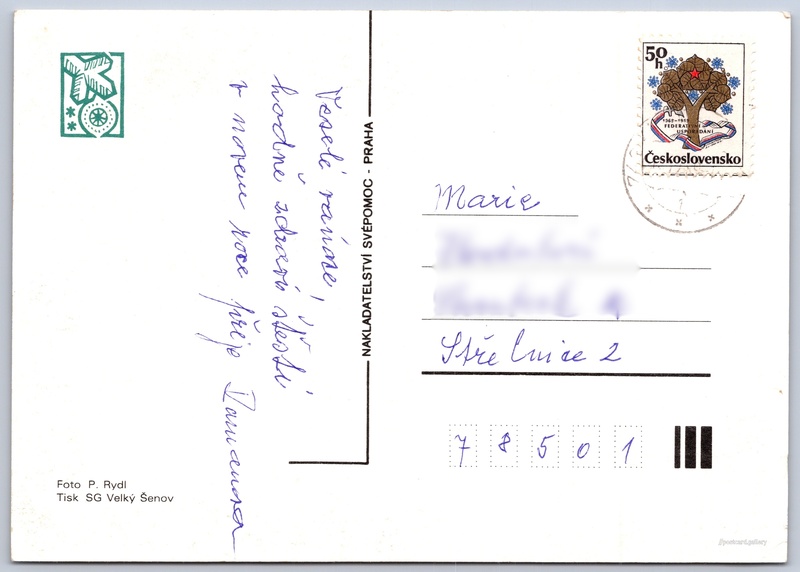 Veselé vánoce,
hodně zdraví štěstí
v novém roce přeje Damaensa
NAKLADATELSTVÍ SVÉPOMOC - PRAHA
50
h
1969-1989
FEDERATIVNÍ
USPOŘÁDÁNÍ
Československo
Marie
Střelnice 2
78501
Foto P. Rydl
Tisk SG Velký Šenov